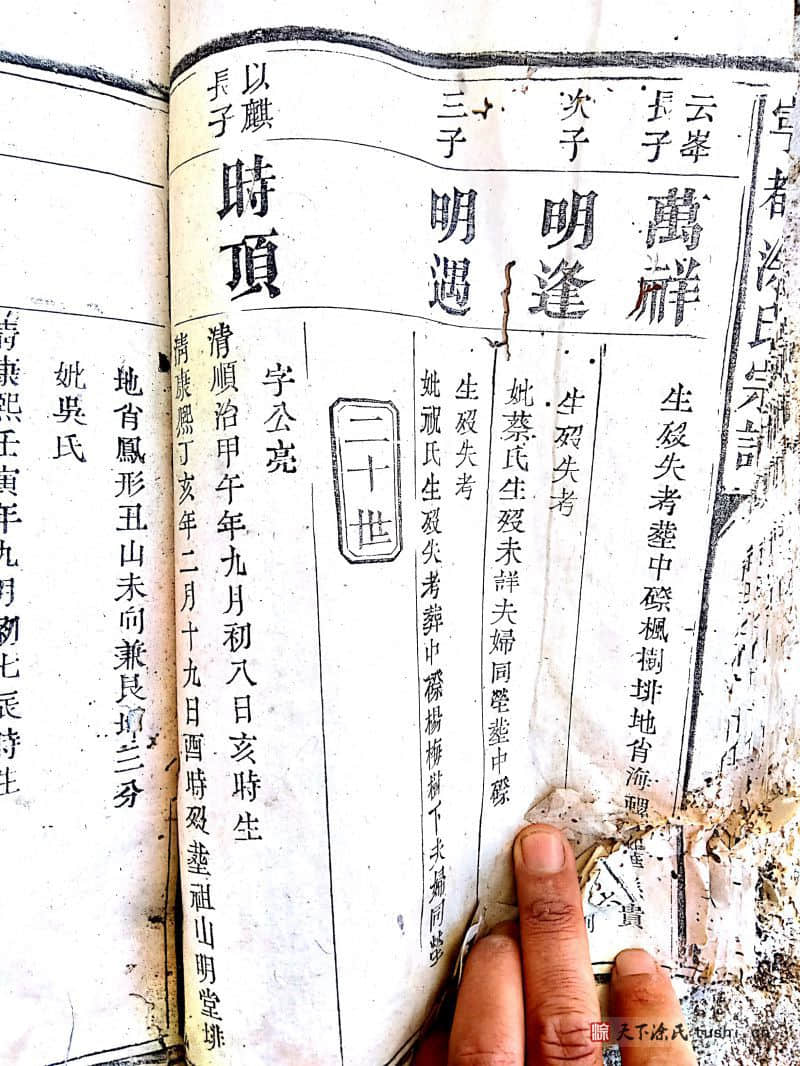 都涂氏宗
云峯
長子
萬祥
生殁失考塟中磜楓樹排地肖海螺
貴
次子
明逢
生殁失考
妣蔡氏生殁未詳夫婦同塋塟中磜
三子
明遇
生殁失考
妣祝氏生殁失考葬中磜楊梅樹下夫婦同塋
二十世
以麒
長子
時頂
字公亮
清順治甲午年九月初八日亥時生
清康熙丁亥年二月十九日酉時殁塟祖山明堂排
地肖鳳形丑山未向兼艮坤三分
妣吳氏
清康熙壬寅年九月初七辰時生
天下涂氏 tushi